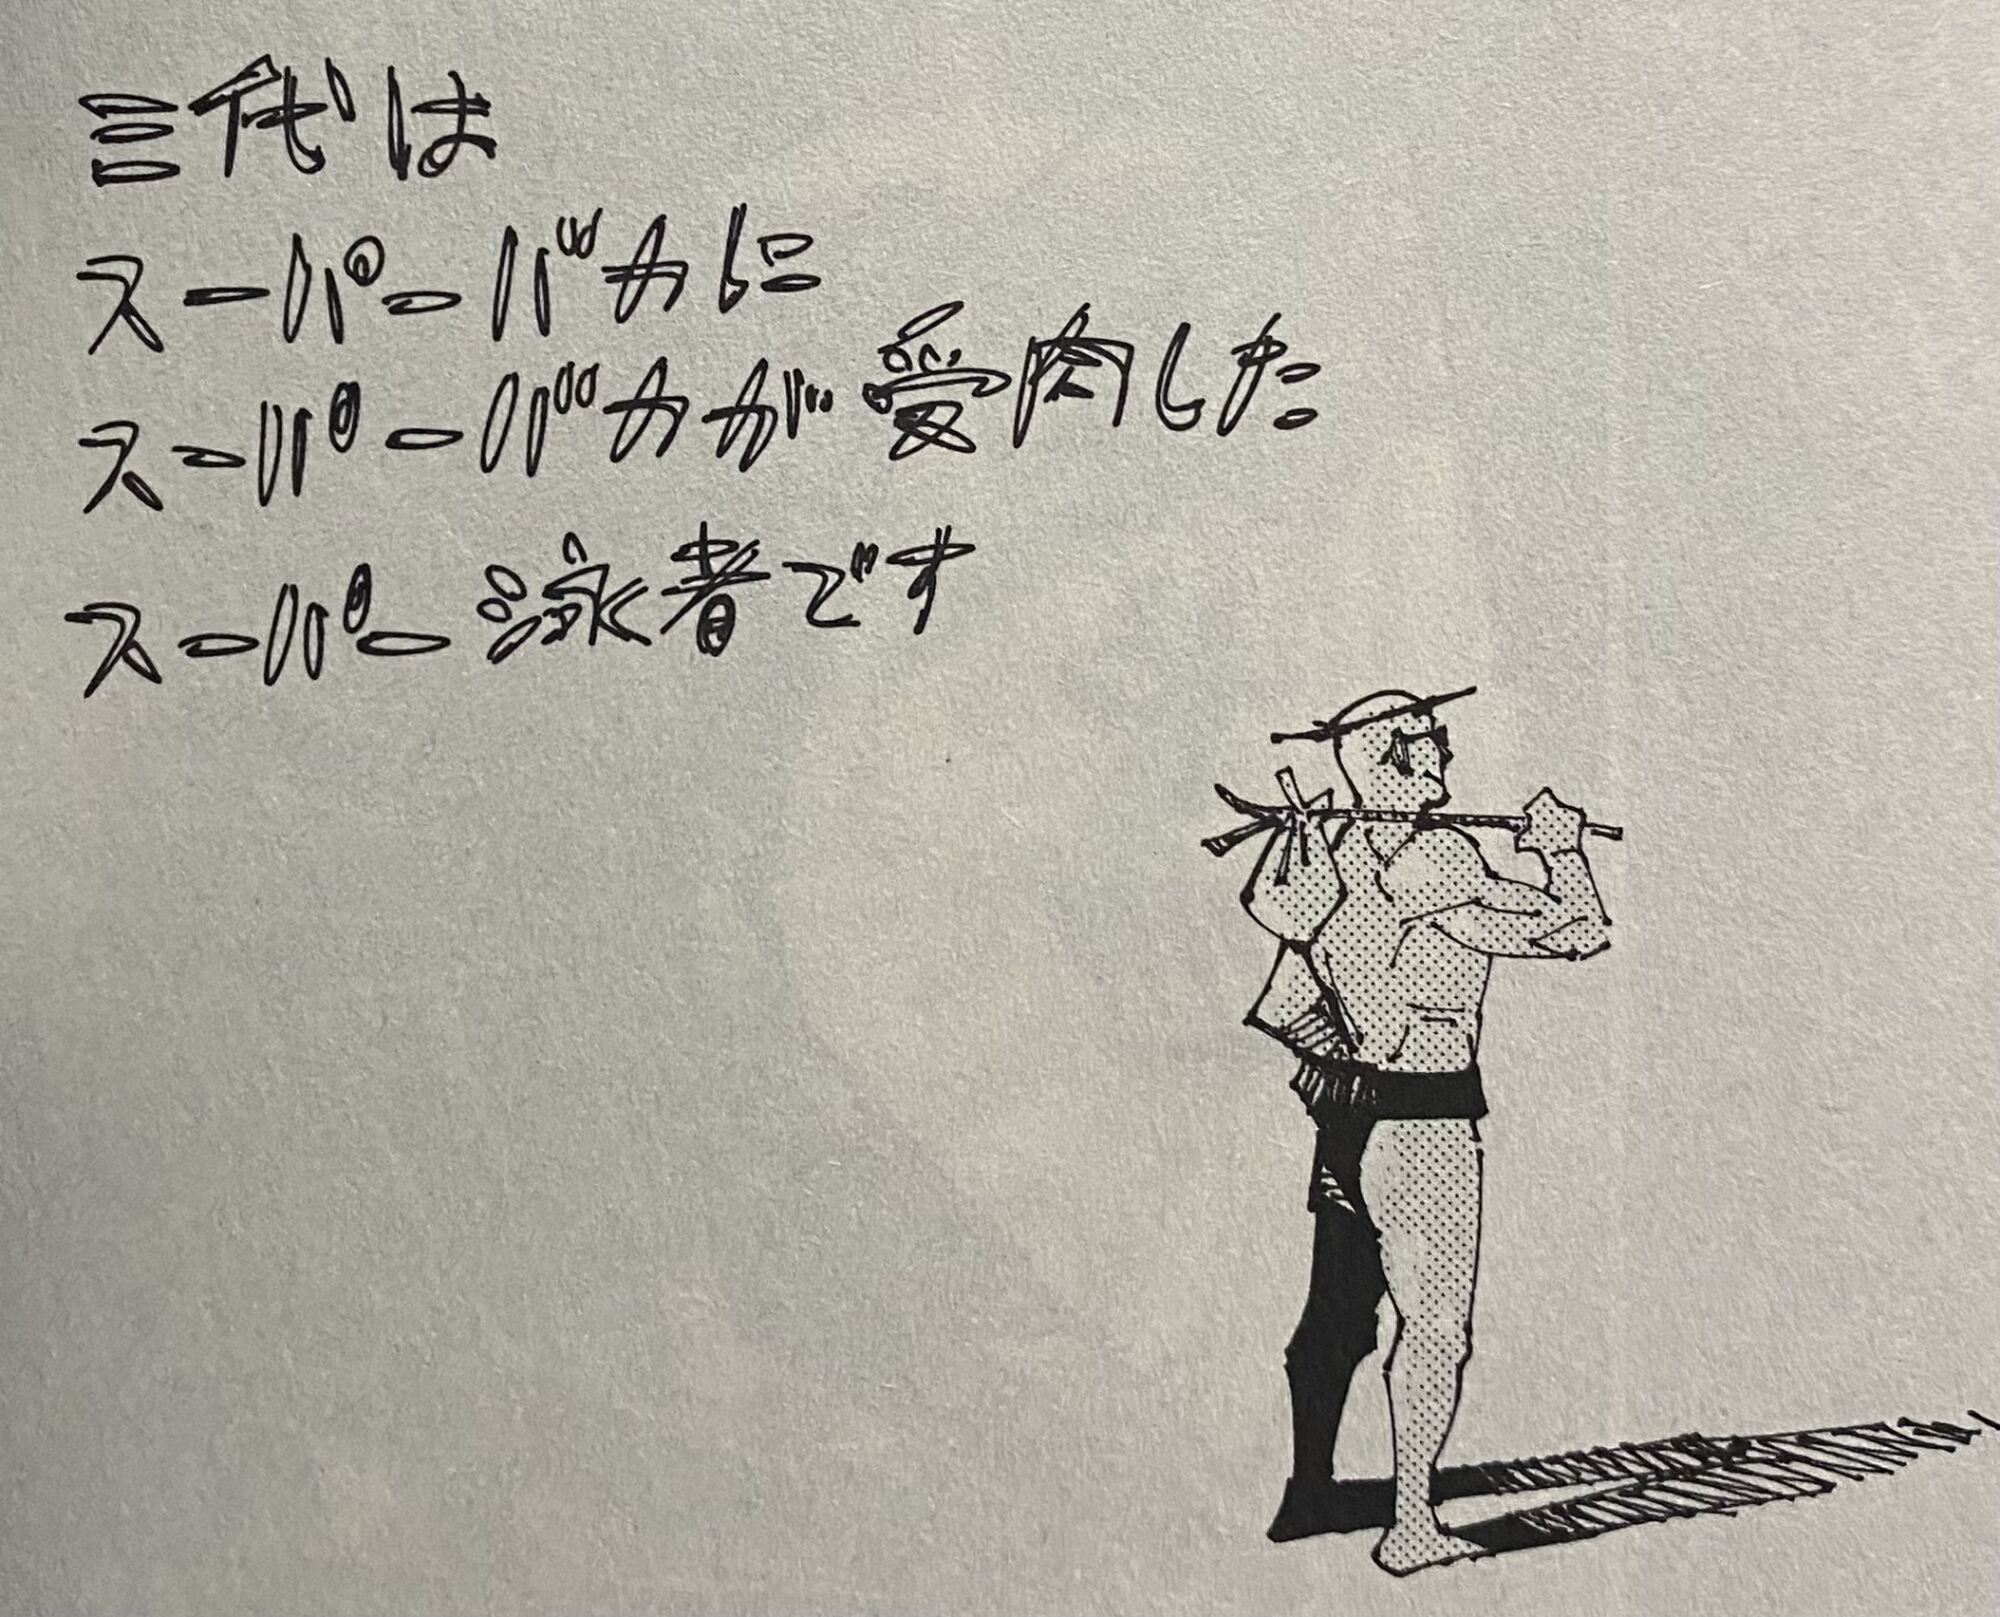 三代は
スーパーバカに
スーパーバカが受肉した
スーパー泳者です